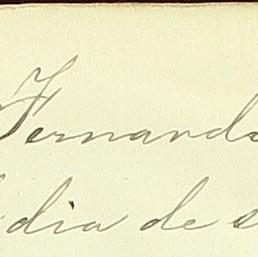 Fernand
dia de s